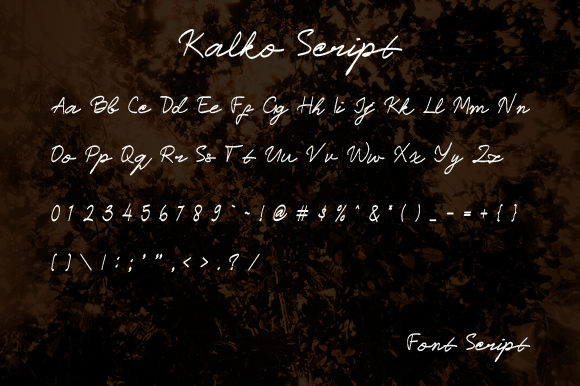 Kalko Script
Aa Bb Cc Dd Ee Ff Gg Hh Ii Jj Kk Ll Mm Nn
Oo Pp Qq Rr Ss Tt Uu Vv Ww Xx Yy Zz
0 1 2 3 4 5 6 7 8 9 ` ~ ! @ # $ % ^ & * ( ) _ - = + { }
[ ] \ | : ; ' " , < > . ? /
Font Script